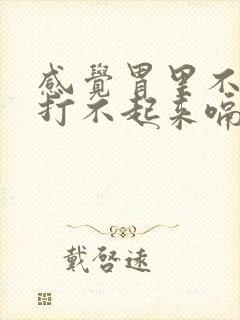 感覺胃里不
打不起来嗝
戴啓遠